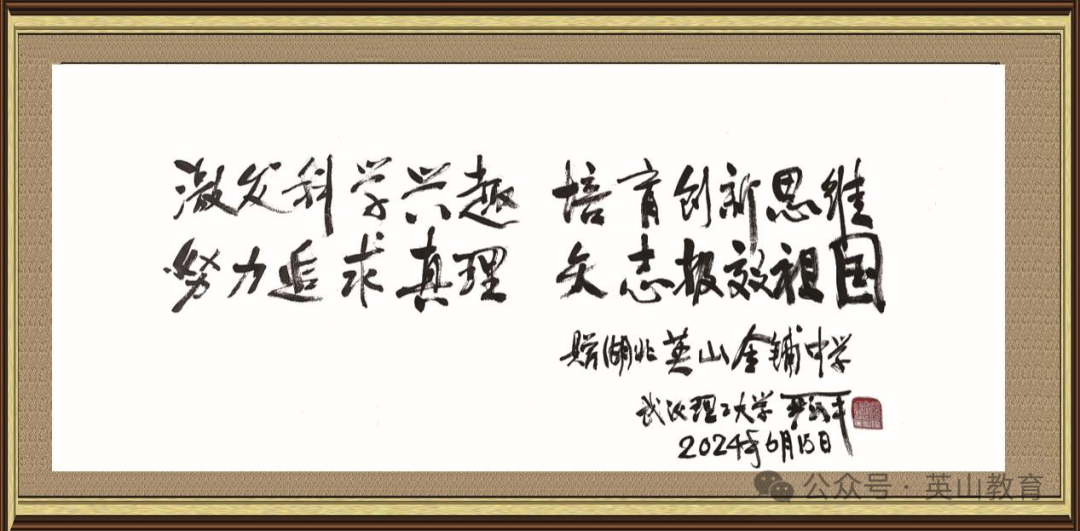 激发科学兴趣 培育创新思维
努力追求真理 矢志报效祖国
赠湖北英山金铺中学
武汉理工大学
2024年6月15日
公众号·英山教育